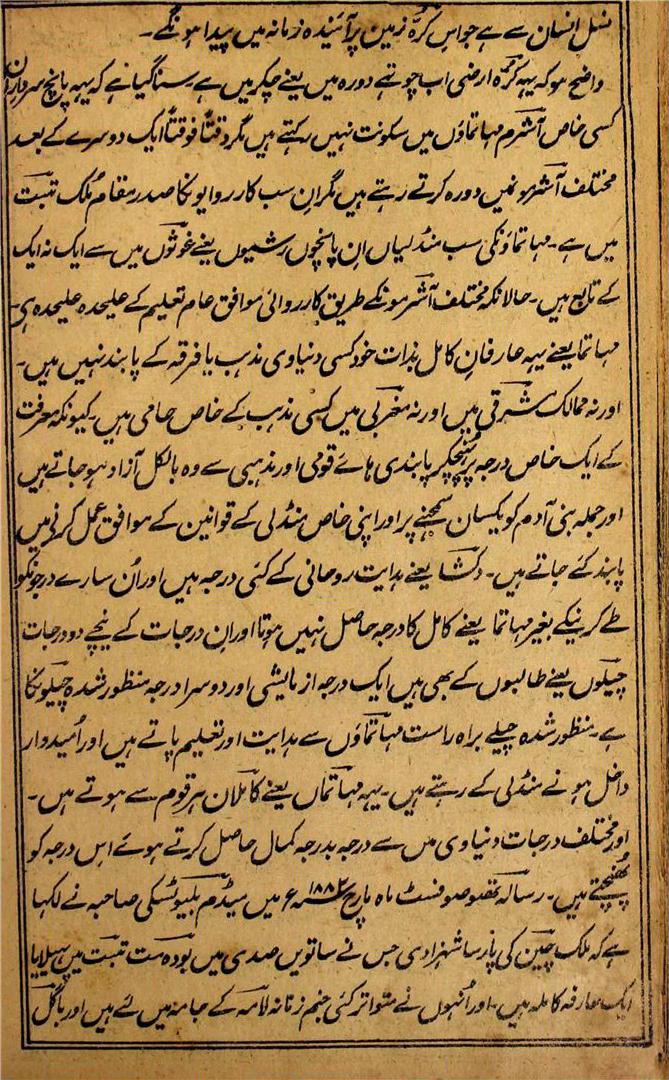 نسل انسان سے ہے جو اس کرۂ زمین پر آئیندہ زمانہ میں پیدا ہونگے۔
واضح ہو کہ یہہ کرۂ ارضی اب چوتہے دورہ میں یعنے چکر میں ہے۔ سنا گیا ہے کہ یہہ پانچ سرداران
کسی خاص آشرم مہاتماؤں میں سکونت نہیں رکہتے ہیں مگر وقتاً فوقتاً ایک دوسرے کے بعد
مختلف آشرمونمیں دورہ کرتے رہتے ہیں مگر ان سب کارروایونکا صدر مقام ملک تبت
میں ہے۔ مہاتماؤنکی سب منڈلیاں ان پانچوں رشیوں یعنے غوثوں میں سے ایک نہ ایک
کے تابع ہیں۔ حالانکہ مختلف آشرمونکے طریق کارروائی موافق عام تعلیم کے علیحدہ علیحدہ ہی۔
مہاتما یعنے یہہ عارفان کامل بذات خود کسی دنیاوی مذہب یا فرقہ کے پابند نہیں ہیں۔
اور نہ ممالک مشرقی ہیں اور نہ مغربی میں کسی مذہب کے خاص حامی ہیں۔ کیونکہ معرفت
کے ایک خاص درجہ پر پہنچکر پابندی ہائے قومی اور مذہبی سے وہ بالکل آزاد ہو جاتے ہیں
اور جملہ بنی آدم کو یکسان سمجہنے پر اور اپنی خاص منڈلی کے قوانین کے موافق عمل کرنے میں
پابند کئے جاتے ہیں۔ دکشا یعنے ہدایت روحانی کے کئی درجہ ہیں اور اُن سارے درجونکو
طے کرنیکے بغیر مہاتما یعنے کامل کا درجہ حاصل نہیں ہوتا اور ان درجات کے نیچے دو درجات
چیلوں یعنے طالبوں کے بھی ہیں ایک درجہ ازمایشی اور دوسرا درجہ منظور شدہ چیلونکا
ہے۔ منظور شدہ چیلے براہ راست مہاتماؤں سے ہدایت اور تعلیم پاتے ہیں اور اُمیدوار
داخل ہونے منڈلی کے رہتے ہیں۔ یہہ مہاتماں یعنے کاملان ہر قوم سے ہوتے ہیں۔
اور مختلف درجات دنیاوی میں سے درجہ بدرجہ کمال حاصل کرتے ہوئے اس درجہ کو
پہنچتے ہیں۔ رسالہ تھصوصوفسٹ ماہ مارچ ۱۸۸۲ء میں میڈم بلیوٹسکی صاحبہ نے لکہا
ہے کہ ملک چین کی پارسا شہزادی جس نے ساتویں صدی میں بودہ مت تبت میں پہیلایا
ایک عارفہ کاملہ ہیں۔ اور اُنہوں نے متواتر کئی جنم زنانہ لامہ کے جامہ میں لئے ہیں اور